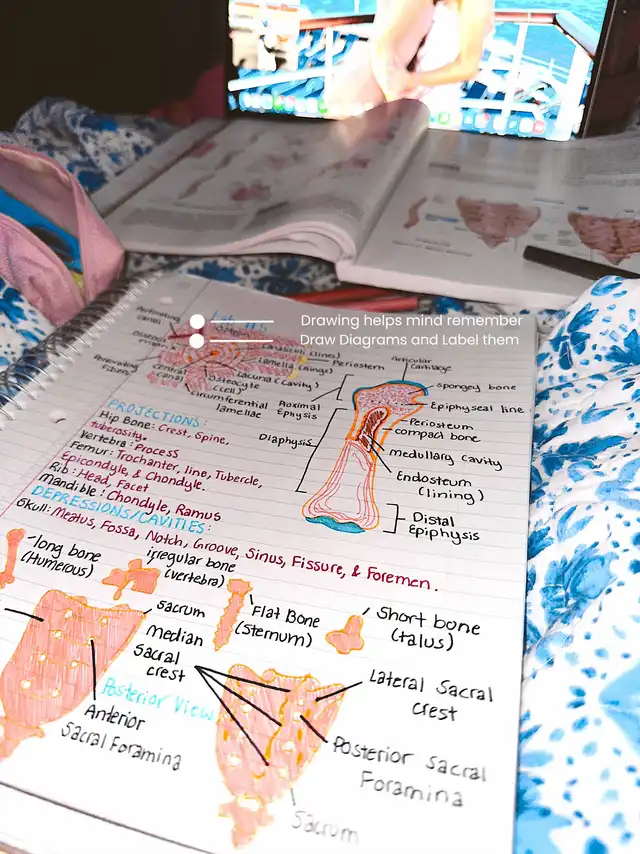 Drawing helps mind remember
Draw Diagrams and Label them
Perforating
canal
Lamella (rings)
Lacuna (cavity)
Periosteum
central
canal
Osteocyte
(cell)
circumferential
lamellae
Articular
cartilage
spongey bone
Epiphyseal line
Periosteum
compact bone
medullary cavity
Endosteum
(lining)
Distal
Epiphysis
Proximal
Ephysis
Diaphysis
PROJECTIONS:
Hip Bone: Crest, Spine,
tuberosity.
Vertebra: Process
Femur: Trochanter, line, Tubercle,
Epicondyle, & Chondyle.
Rib: Head, Facet
Mandible: Chondyle, Ramus
DEPRESSIONS/CAVITIES:
Skull: Meatus, Fossa, Notch, Groove, Sinus, Fissure, & Foremen.
long bone
(Humerous)
irregular bone
(vertebra)
Flat Bone
(sternum)
Short bone
(talus)
sacrum
median
sacral
crest
Posterior View
Anterior
Sacral Foramina
Lateral Sacral
crest
Posterior Sacral
Foramina
Sacrum